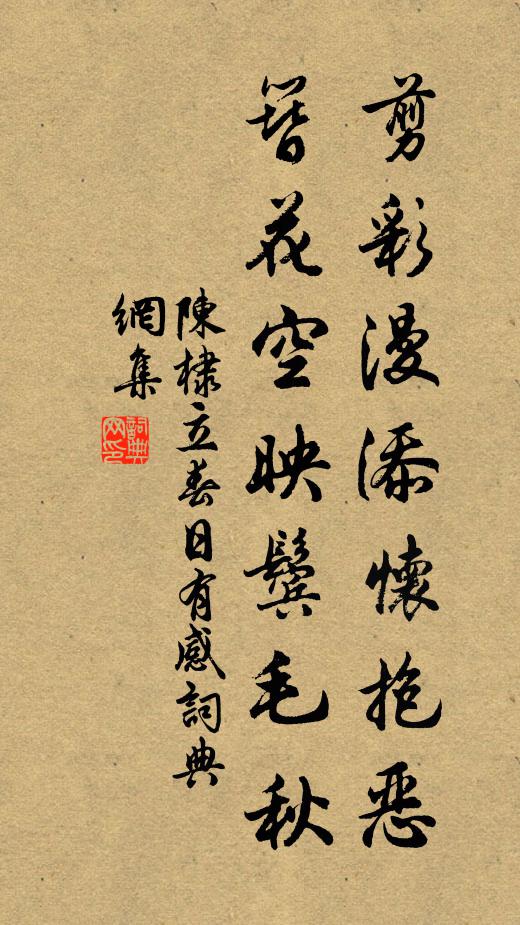 剪彩漫添懷抱惡
簪花空映鬢毛秋
陳棣立春日有感詞典
網集
詞典
网印